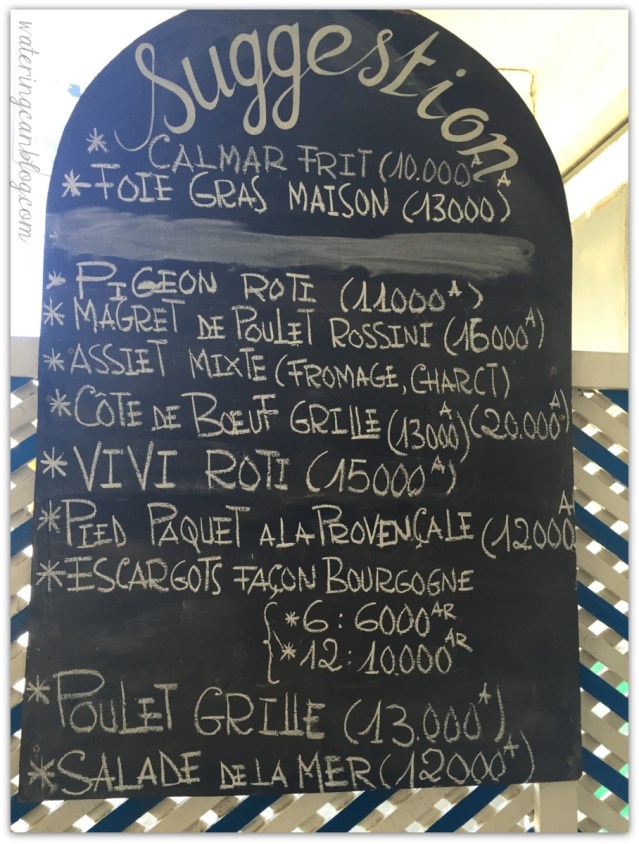 wateringcanblog.com
Suggestion
* CALMAR FRIT (10.000 A
* FOIE GRAS MAISON (13000 A)
* PIGEON ROTI (11000 A)
* MAGRET DE POULET ROSSINI (16000 A)
* ASSIET MIXTE (FROMAGE, CHARCT)
* CÔTE DE BŒUF GRILLE (13000 A) (20.000 A)
* VIVI ROTI (15000 A)
* PIED PAQUET A LA PROVENÇALE (12000 A
* ESCARGOTS FAÇON BOURGOGNE
{ * 6 : 6000 AR
* 12 : 10.000 AR
* POULET GRILLE (13.000 A)
* SALADE DE LA MER (12000 A)